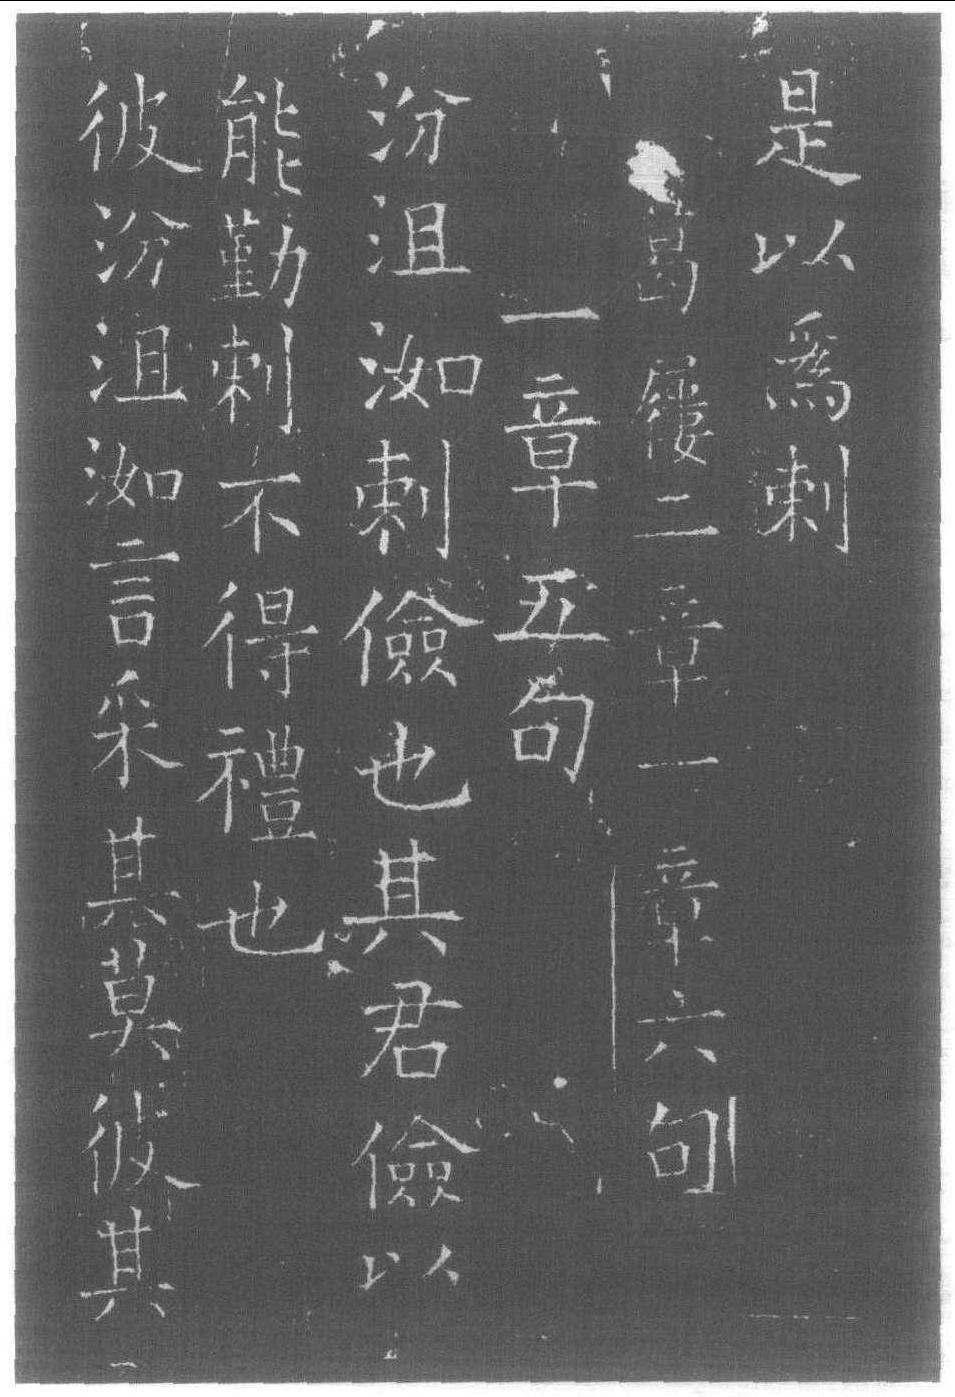 是以為刺
葛屨二章一章六句
一章五句
汾沮洳刺儉也其君儉以
能勤刺不得禮也
彼汾沮洳言采其莫彼其